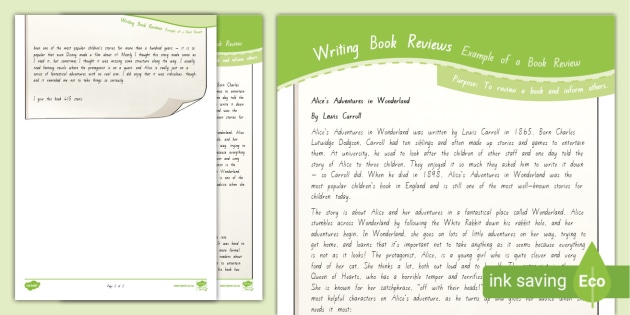 Writing Book Reviews Example of a Book Review
been one of the most popular children's stories for more than a hundred years – it is so
popular that even Disney made a film about it! Mainly I thought this story made sense as
I read it, but sometimes I thought it was missing some structure along the way. I usually
read fantasy novels where the protagonist has a and Alice is really just on a
series of fantastical adventures with no real aim. I did enjoy that it was ridiculous though,
and it reminded me not to take things so seriously.
I give this book 4/5 stars.
Page 2 of 2
Book Review
and inform others.
Writing Book Reviews Example of a Book Review
Purpose: To review a book and inform others.
Alice's Adventures in Wonderland
By Lewis Carroll
Alice's Adventures in Wonderland was written by Lewis Carroll in 1865. Born Charles
Lutwidge Dodgson, Carroll had ten siblings and often made up stories and games to entertain
them. At university, he used to look after the children of other staff and one day told the
story of Alice to three children. They enjoyed it so much they asked him to write it down
– so Carroll did. When he died in 1898, Alice's Adventures in Wonderland was the
most popular children's book in England and is still one of the most well-known stories for
children today.
The story is about Alice and her adventures in a fantastical place called Wonderland. Alice
stumbles across Wonderland by following the White Rabbit down his rabbit hole, and her
adventures begin. In Wonderland, she goes on lots of little adventures on her way, trying to
get home, and learns that it's important not to take anything as it seems because everything
is not as it looks! The protagonist, Alice, is a young girl who is quite clever and very
fond of her cat. She thinks a lot, both out loud and to
Queen of Hearts, who has a horrible temper and terrifies
She is known for her catchphrase, "off with their heads!"
most helpful characters on Alice's adventure, as he turns up and gives her advice when she
needs it most:
ink saving Eco